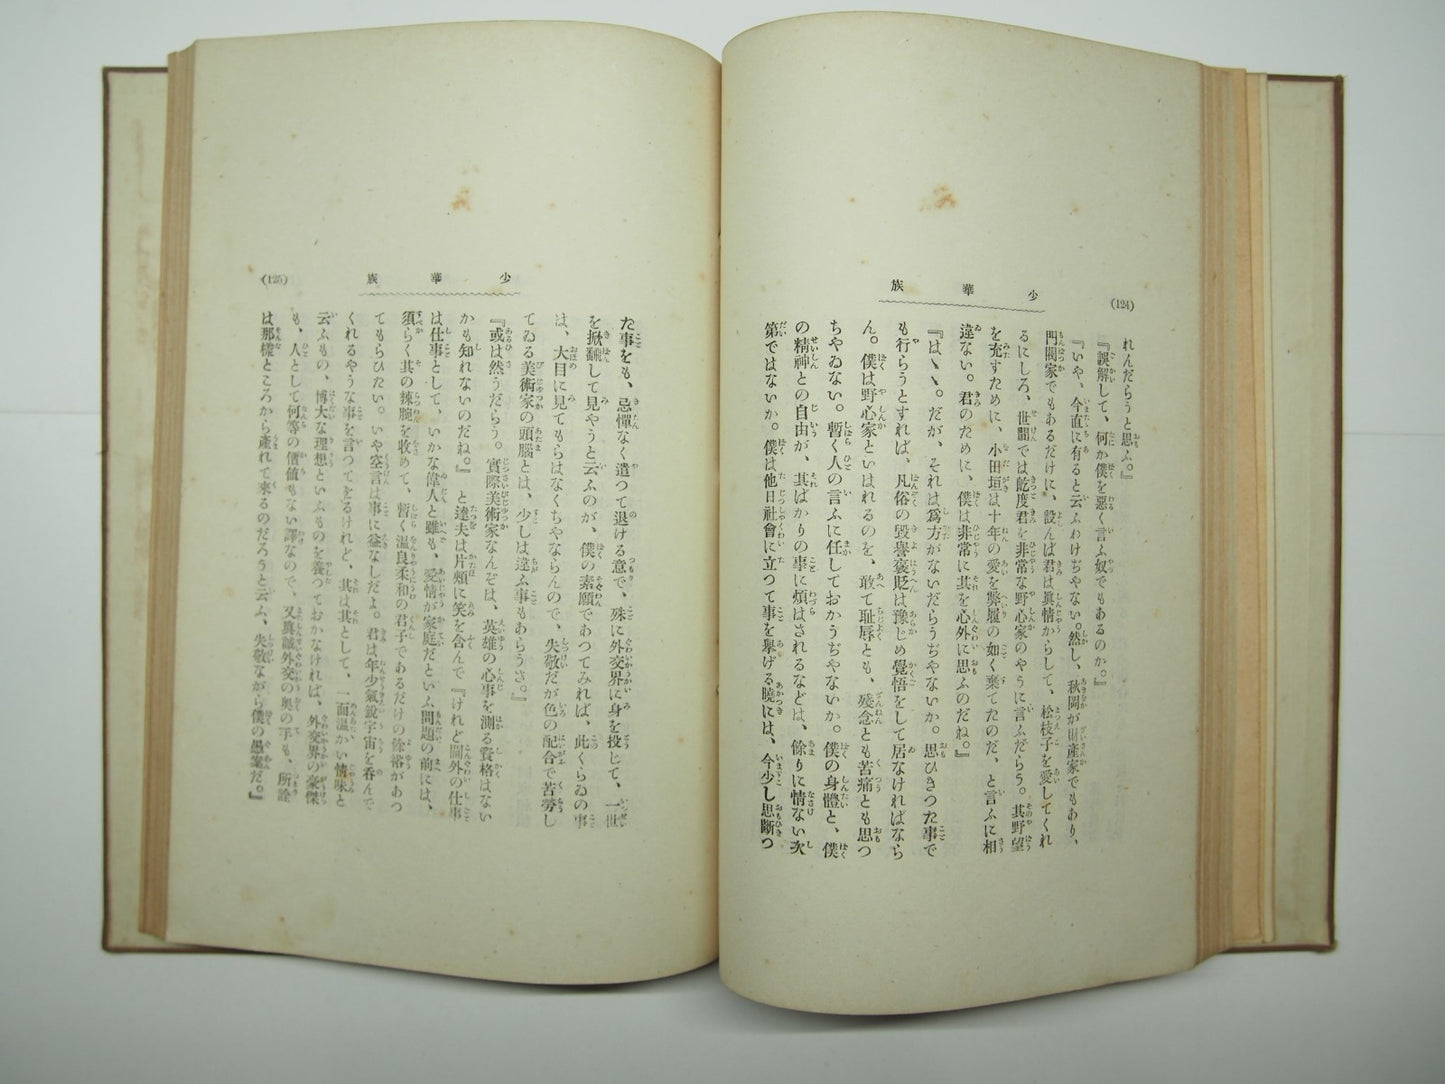 (124)
少華族
れんだらうと思ふ。』
『誤解して、何か僕を惡く言ふ奴でもあるのか。』
『いや、今直に有ると云ふわけぢやない。然し、秋岡が財產家でもあり、
門閥家でもあるだけに、設んば君は眞情からして、松枝子を愛してくれ
るにしろ、世間では屹度君を非常な野心家のやうに言ふだらう。其野望
を充すために、小田垣は十年の愛を弊履の如く棄てたのだ、と言ふに相
違ない。君のために、僕は非常に其を心外に思ふのだね。』
『はゝゝ。だが、それは爲方がないだらうぢやないか。思ひきつた事で
も行らうとすれば、凡俗の毀譽褒貶は豫じめ覺悟をして居なければなら
ん。僕は野心家といはれるのを、敢て耻辱とも、殘念とも苦痛とも思つ
ちやゐない。暫く人の言ふに任しておかうぢやないか。僕の身體と、僕
の精神との自由が、其ばかりの事に煩はされるなどは、餘りに情ない次
第ではないか。僕は他日社會に立つて事を擧げる曉には、今少し思斷つ
(125)
少華族
た事をも、忌憚なく遣つて退ける意で、殊に外交界に身を投じて、一世
を掀飜して見やうと云ふのが、僕の素願であつてみれば、此くらゐの事
は、大目に見てもらはなくちやならんので、失敬だが色の配合で苦勞し
てゐる美術家の頭腦とは、少しは違ふ事もあらうさ。』
『或は然うだらう。實際美術家なんぞは、英雄の心事を測る資格はない
かも知れないのだね。』と達夫は片頰に笑を含んで『けれど閫外の仕事
は仕事として、いかな偉人と雖も、愛情が家庭だといふ問題の前には、
須らく其の辣腕を收めて、暫く溫良柔和の君子であるだけの餘裕があつ
てもらひたい。いや空言は事に益なしだよ。君は年少氣銳宇宙を呑んで
くれるやうな事を言つてをるけれど、其は其として、一面溫かい情味と
云ふもの、博大な理想といふものを養つておかなければ、外交界の豪傑
も、人として何等の價値もない譯なので、又眞誠外交の奧の手も、所詮
は那樣ところから產れて來るのだろうと云ふ、失敬ながら僕の愚案だ。』